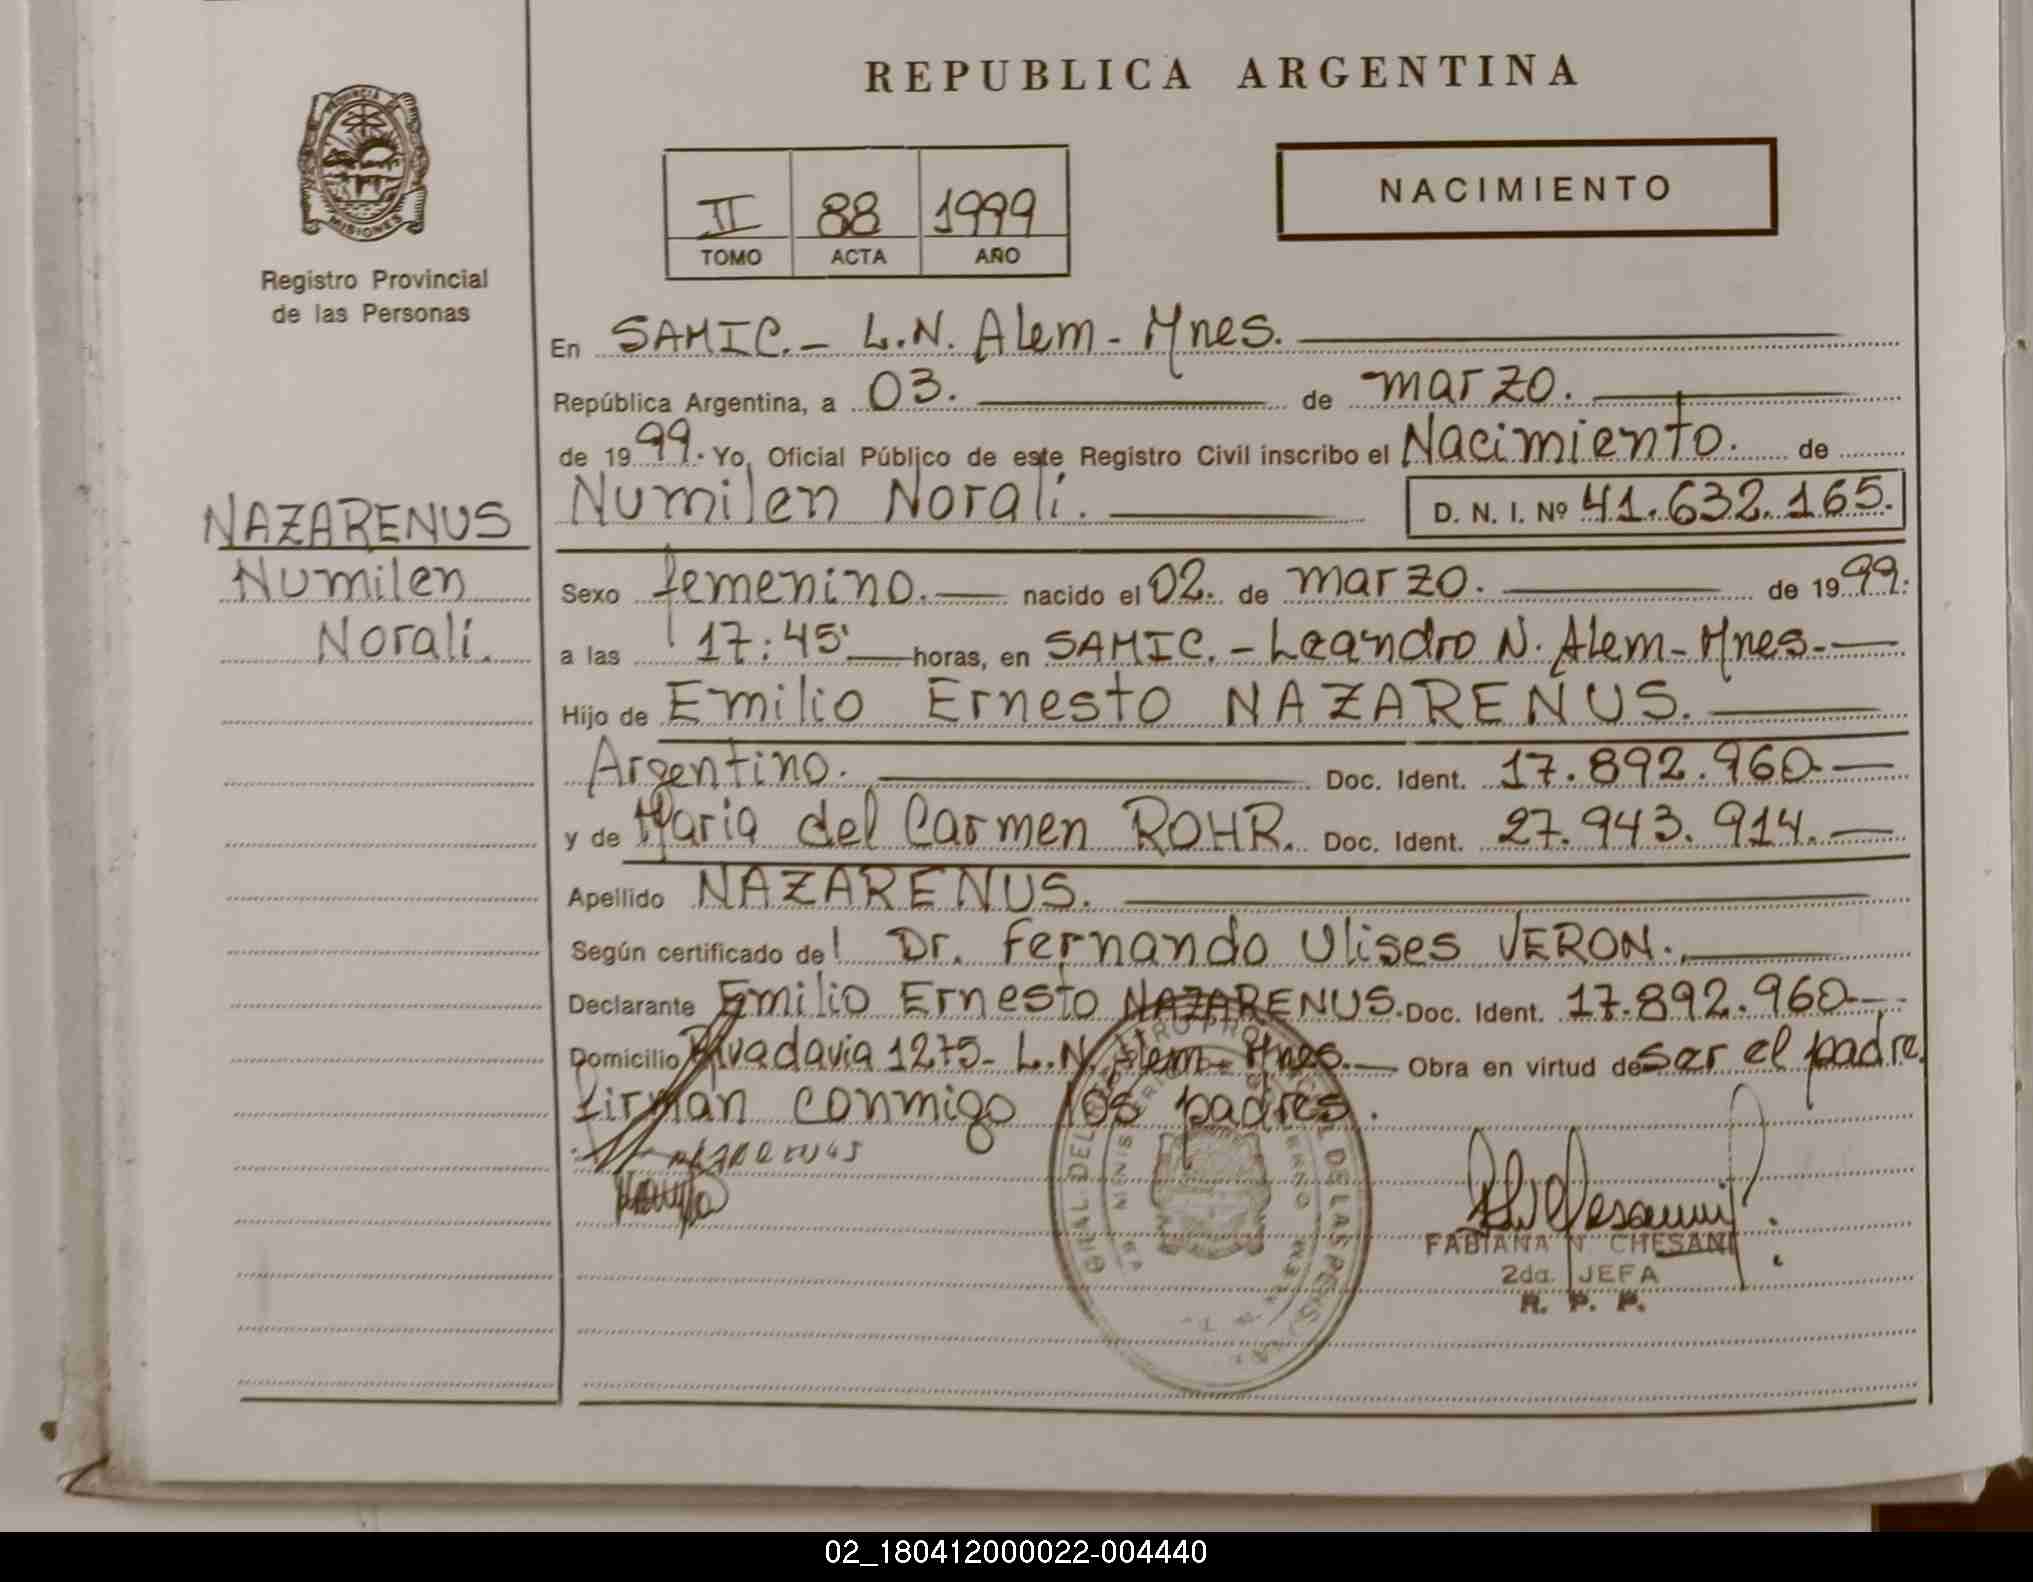 REPUBLICA ARGENTINA
PROVINCIA
MISIONES
Registro Provincial
de las Personas
II 88 1999
TOMO ACTA AÑO
NACIMIENTO
En SAMIC.- L.N. Alem - Mnes.
República Argentina, a 03. de marzo.
de 1999. Yo, Oficial Público de este Registro Civil inscribo el Nacimiento. de
Numilen Norali. D. N. I. Nº 41.632.165.
NAZARENUS
Numilen
Norali.
Sexo femenino. nacido el 02. de marzo. de 1999.
a las 17:45' horas, en SAMIC.- Leandro N. Alem - Mnes.-
Hijo de Emilio Ernesto NAZARENUS.
Argentino. Doc. Ident. 17.892.960-
y de Maria del Carmen ROHR. Doc. Ident. 27.943.914.
Apellido NAZARENUS.
Según certificado del Dr. Fernando Ulises VERON.
Declarante Emilio Ernesto NAZARENUS. Doc. Ident. 17.892.960-
Domicilio Rivadavia 1275- L.N. Alem - Mnes. Obra en virtud de ser el padre.
firman conmigo los padres.
FABIANA N. CHESANI
2da. JEFA
R. P. P.
02_180412000022-004440